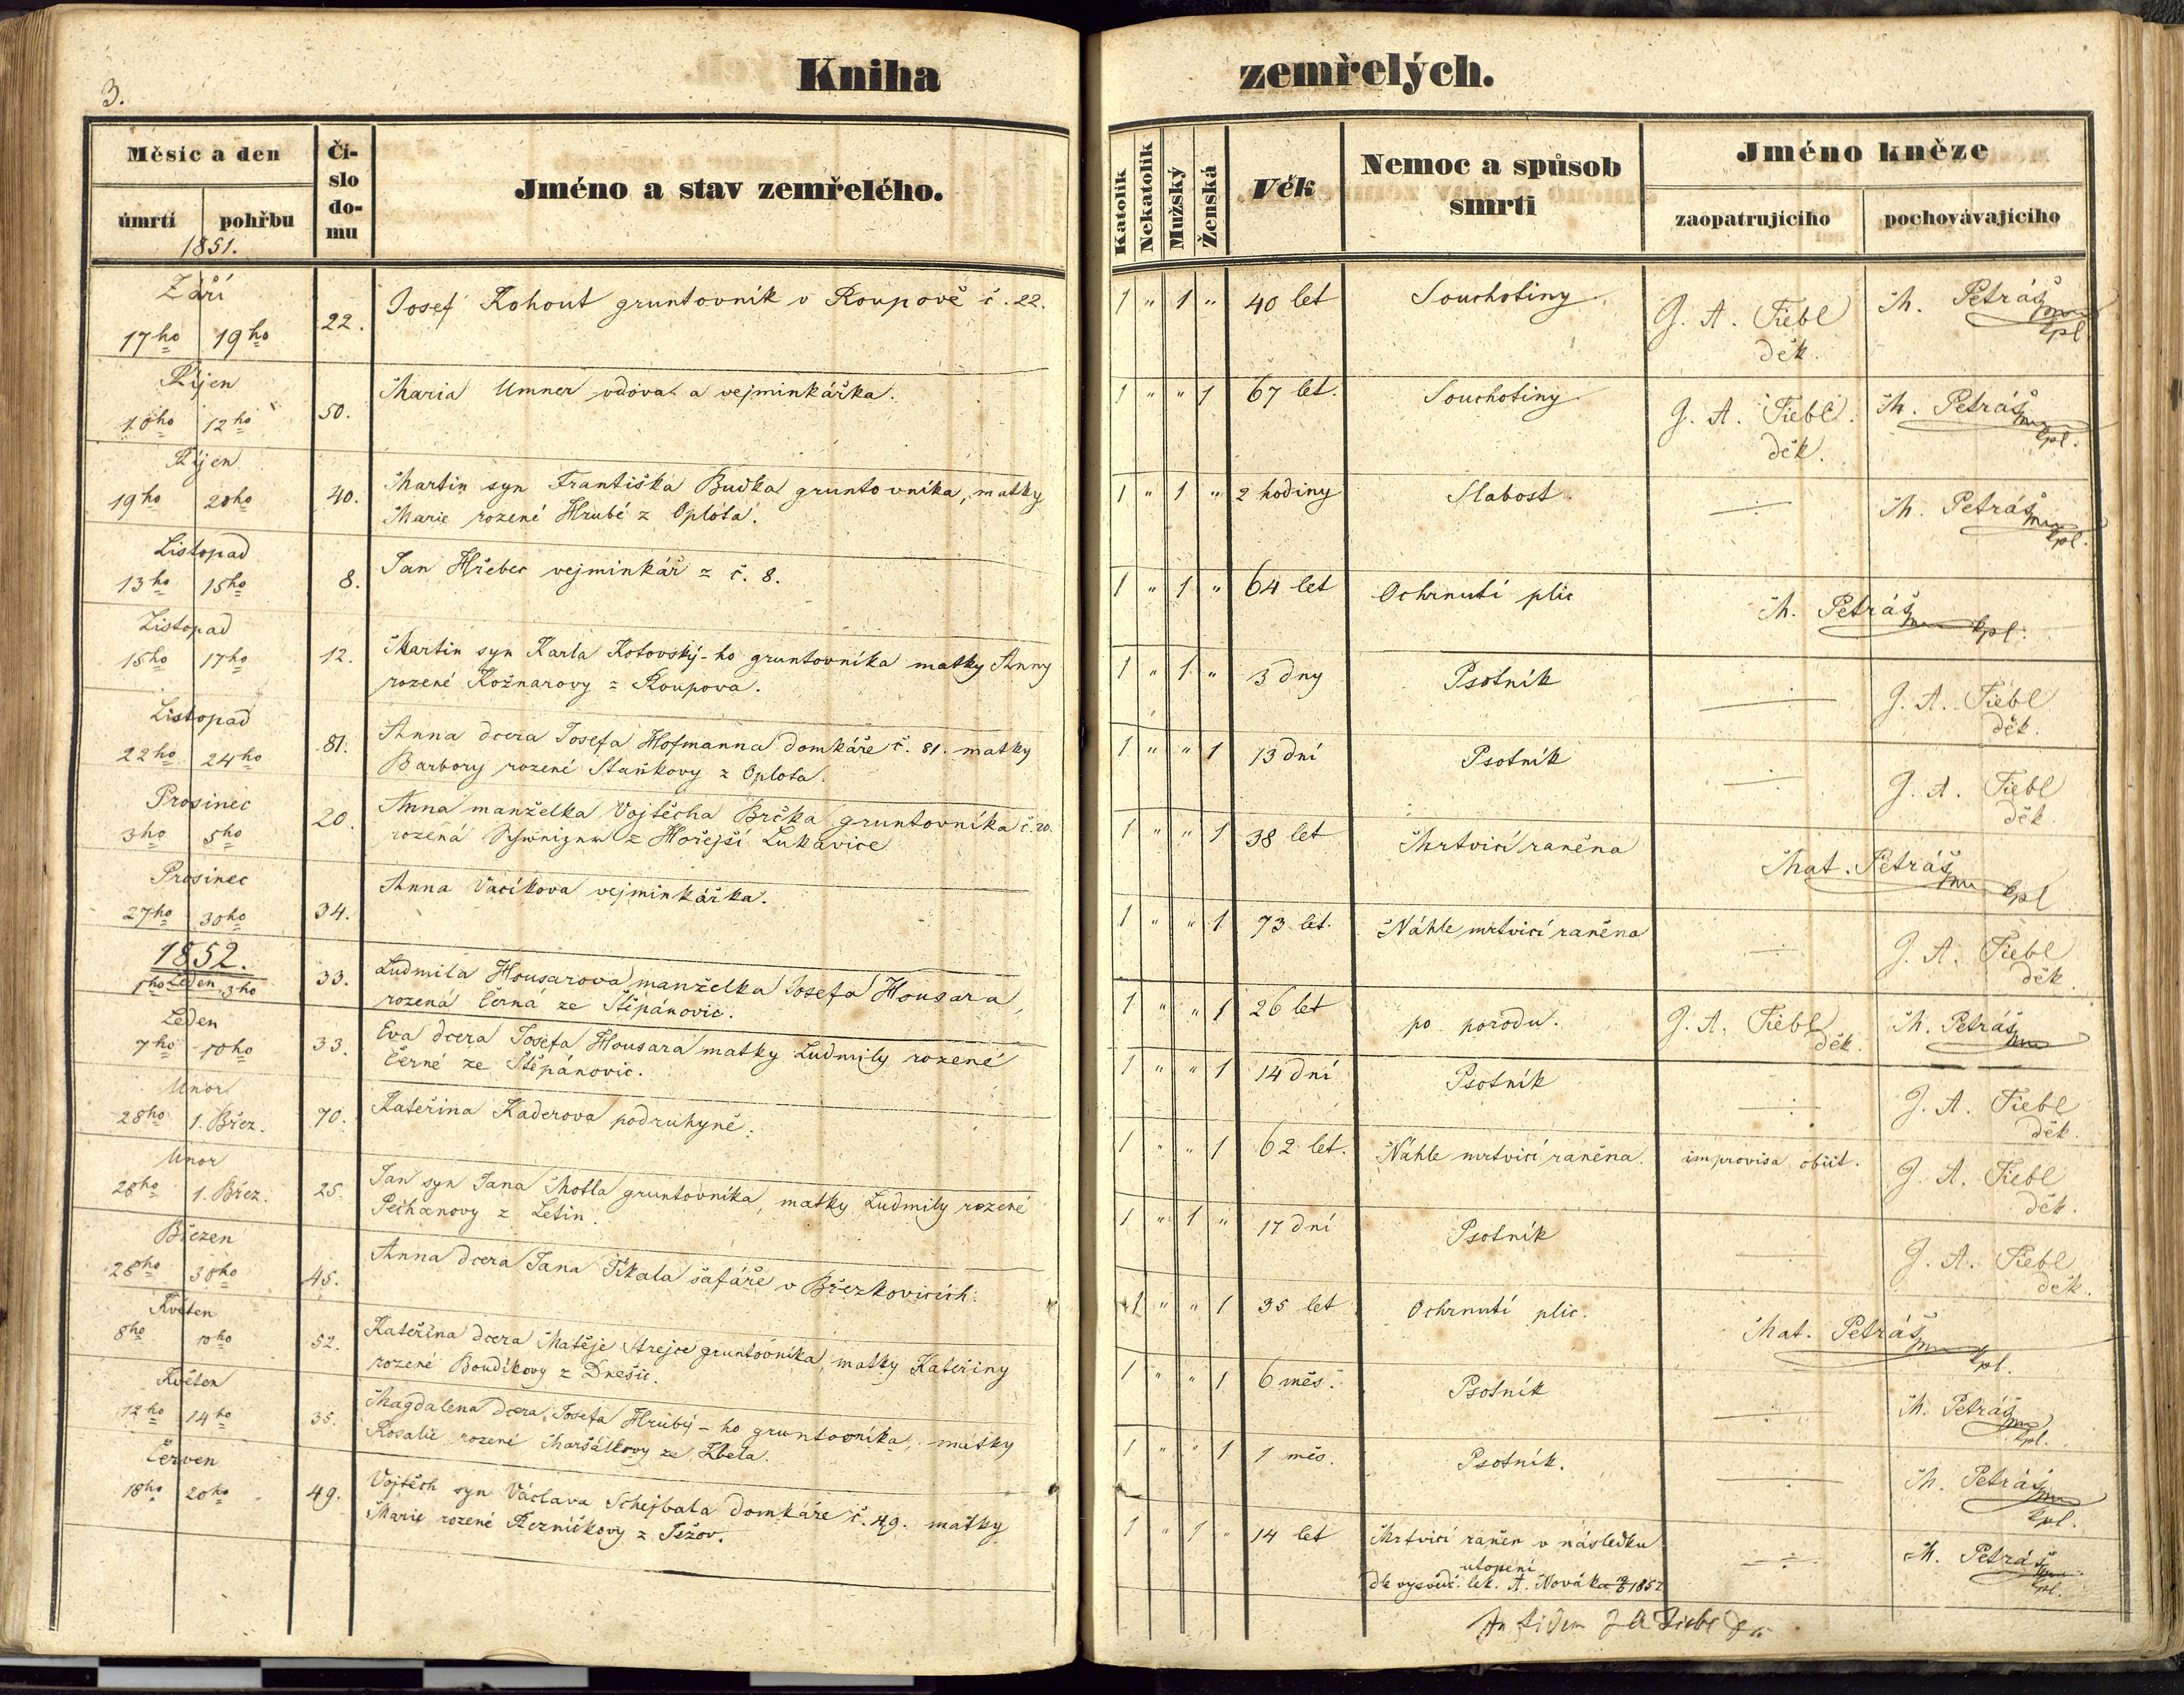 3.
Kniha zemřelých.
Měsíc a den
úmrtí
pohřbu
1851.
Čí-
slo
do-
mu
Jméno a stav zemřelého.
Katolík
Nekatolík
Mužský
Ženská
Věk
Nemoc a spůsob
smrti
Jméno kněze
zaopatrujícího
pochovávajícího
Září
17ho 19ho 22. Josef Kohout gruntovník v Roupově č. 22. 1 " 1 " 40 let Souchotiny. J. A. Fiebl M. Petráš
děk. kpl.
Říjen
10ho 12ho 50. Maria Umner vdova a vejminkářka. 1 " " 1 67 let. Souchotiny. J. A. Fiebl. M. Petráš
děk. kpl.
Říjen
19ho 20ho 40. Martin syn Františka Buďka gruntovníka, matky 1 " 1 " 2 hodiny Slabost M. Petráš
Marie rozené Hrubé z Oplota. kpl.
Listopad
13ho 15ho 8. Jan Hřebec vejminkář z č. 8. 1 " 1 " 64 let Ochrnutí plic M. Petráš kpl.
Listopad
15ho 17ho 12. Martin syn Karla Kotovský-ho gruntovníka matky Anny 1 " 1 " 3 dny Psotník J. A. Fiebl
rozené Kožnarovy z Roupova. děk.
Listopad
22ho 24ho 81. Anna dcera Josefa Hofmanna domkáře č. 81. matky 1 " " 1 13 dní Psotník J. A. Fiebl
Barbory rozené Staňkovy z Oplota. děk.
Prosinec
3ho 5ho 20. Anna manželka Vojtěcha Brčka gruntovníka č. 20. 1 " " 1 38 let Mrtvicí raněna Mat. Petráš kpl
rozená z Hořejší Lukavice
Prosinec
27ho 30ho 34. Anna Vacíkova vejminkářka. 1 " " 1 73 let. Náhle mrtvicí raněna J. A. Fiebl
děk.
1852.
Leden
1ho 3ho 33. Ludmila Housarova manželka Josefa Housara, 1 " " 1 26 let po porodu. J. A. Fiebl M. Petráš
rozená Černá ze Štěpánovic. děk.
Leden
7ho 10ho 33. Eva dcera Josefa Housara matky Ludmily rozené 1 " " 1 14 dní Psotník J. A. Fiebl
Černé ze Štěpánovic. děk.
Unor
28ho 1. Břez. 70. Kateřina Kaderova podruhyně. 1 " " 1 62 let. Náhle mrtvicí raněna. improvisa obiit. J. A. Fiebl
děk.
Unor
28ho 1. Břez. 25. Jan syn Jana Motla gruntovníka, matky Ludmily rozené 1 " 1 " 17 dní Psotník J. A. Fiebl
Pechanovy z Letin. děk.
Březen
28ho 30ho 45. Anna dcera Jana Tikala šafáře v Březkovicích. 1 " " 1 35 let Ochrnutí plic. Mat. Petráš kpl.
Květen
8ho 10ho 52. Kateřina dcera Matěje Strejce gruntovníka, matky Kateřiny 1 " " 1 6 měs. Psotník M. Petráš
rozené Boudíkovy z Dnešic. kpl.
Květen
12ho 14ho 35. Magdalena dcera Josefa Hrubý-ho gruntovníka, matky 1 " " 1 1 měs. Psotník. M. Petráš
Rosalie rozené Maršálkovy ze Zbela. kpl.
Červen
18ho 20ho 49. Vojtěch syn Václava Schejbala domkáře č. 49. matky 1 " 1 " 14 let Mrtvicí raněn v následku M. Petráš
Marie rozené Řezníčkovy z Ježov. utopení kpl.
dle vysvěd. lék. A. Nováka 19/6 1852
J A Fiebl